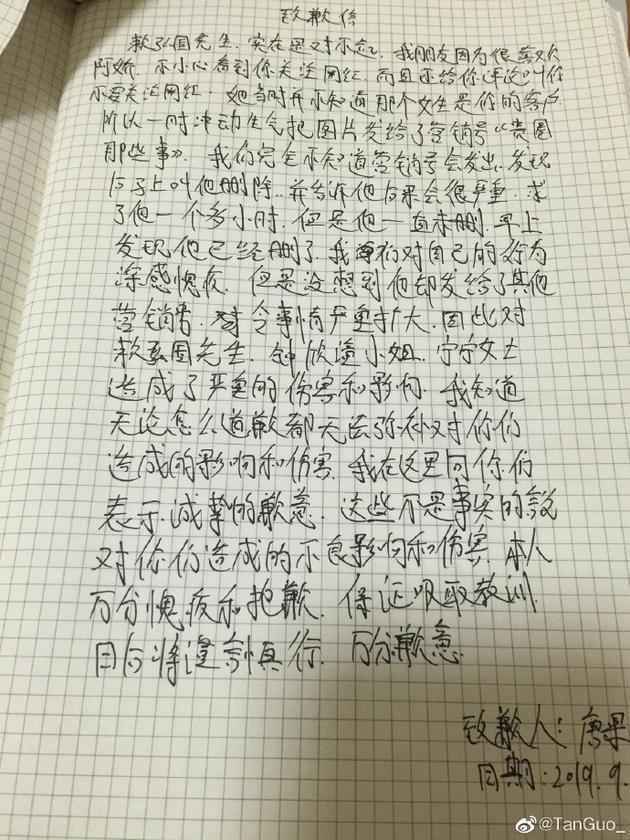 致歉信
赖弘国先生.实在是对不起.我朋友因为很喜欢
阿娇.不小心看到你关注网红.而且还给你评论叫你
不要关注网红.她当时并不知道那个女生是你的客户
所以一时冲动生气把图片发给了营销号《贵圈
那些事》.我们完全不知道营销号会发出.发现
后马上叫他删除.并告诉他后果会很严重.求
了他一个多小时.但是他一直未删.早上
发现他已经删了.我们对自己的行为
深感愧疚.但是没想到他却发给了其他
营销号.令事情严重扩大.因此对
赖弘国先生.钟欣潼小姐.宁宁女士
造成了严重的伤害和影响.我知道
无论怎么道歉都无法弥补对你们
造成的影响和伤害.我在这里向你们
表示诚挚的歉意.这些不是事实的
对你们造成的不良影响和伤害.本人
万分愧疚和抱歉.保证吸取教训
日后将谨言慎行.万分歉意.
致歉人:唐果
日期:2019.9.
@TanGuo_